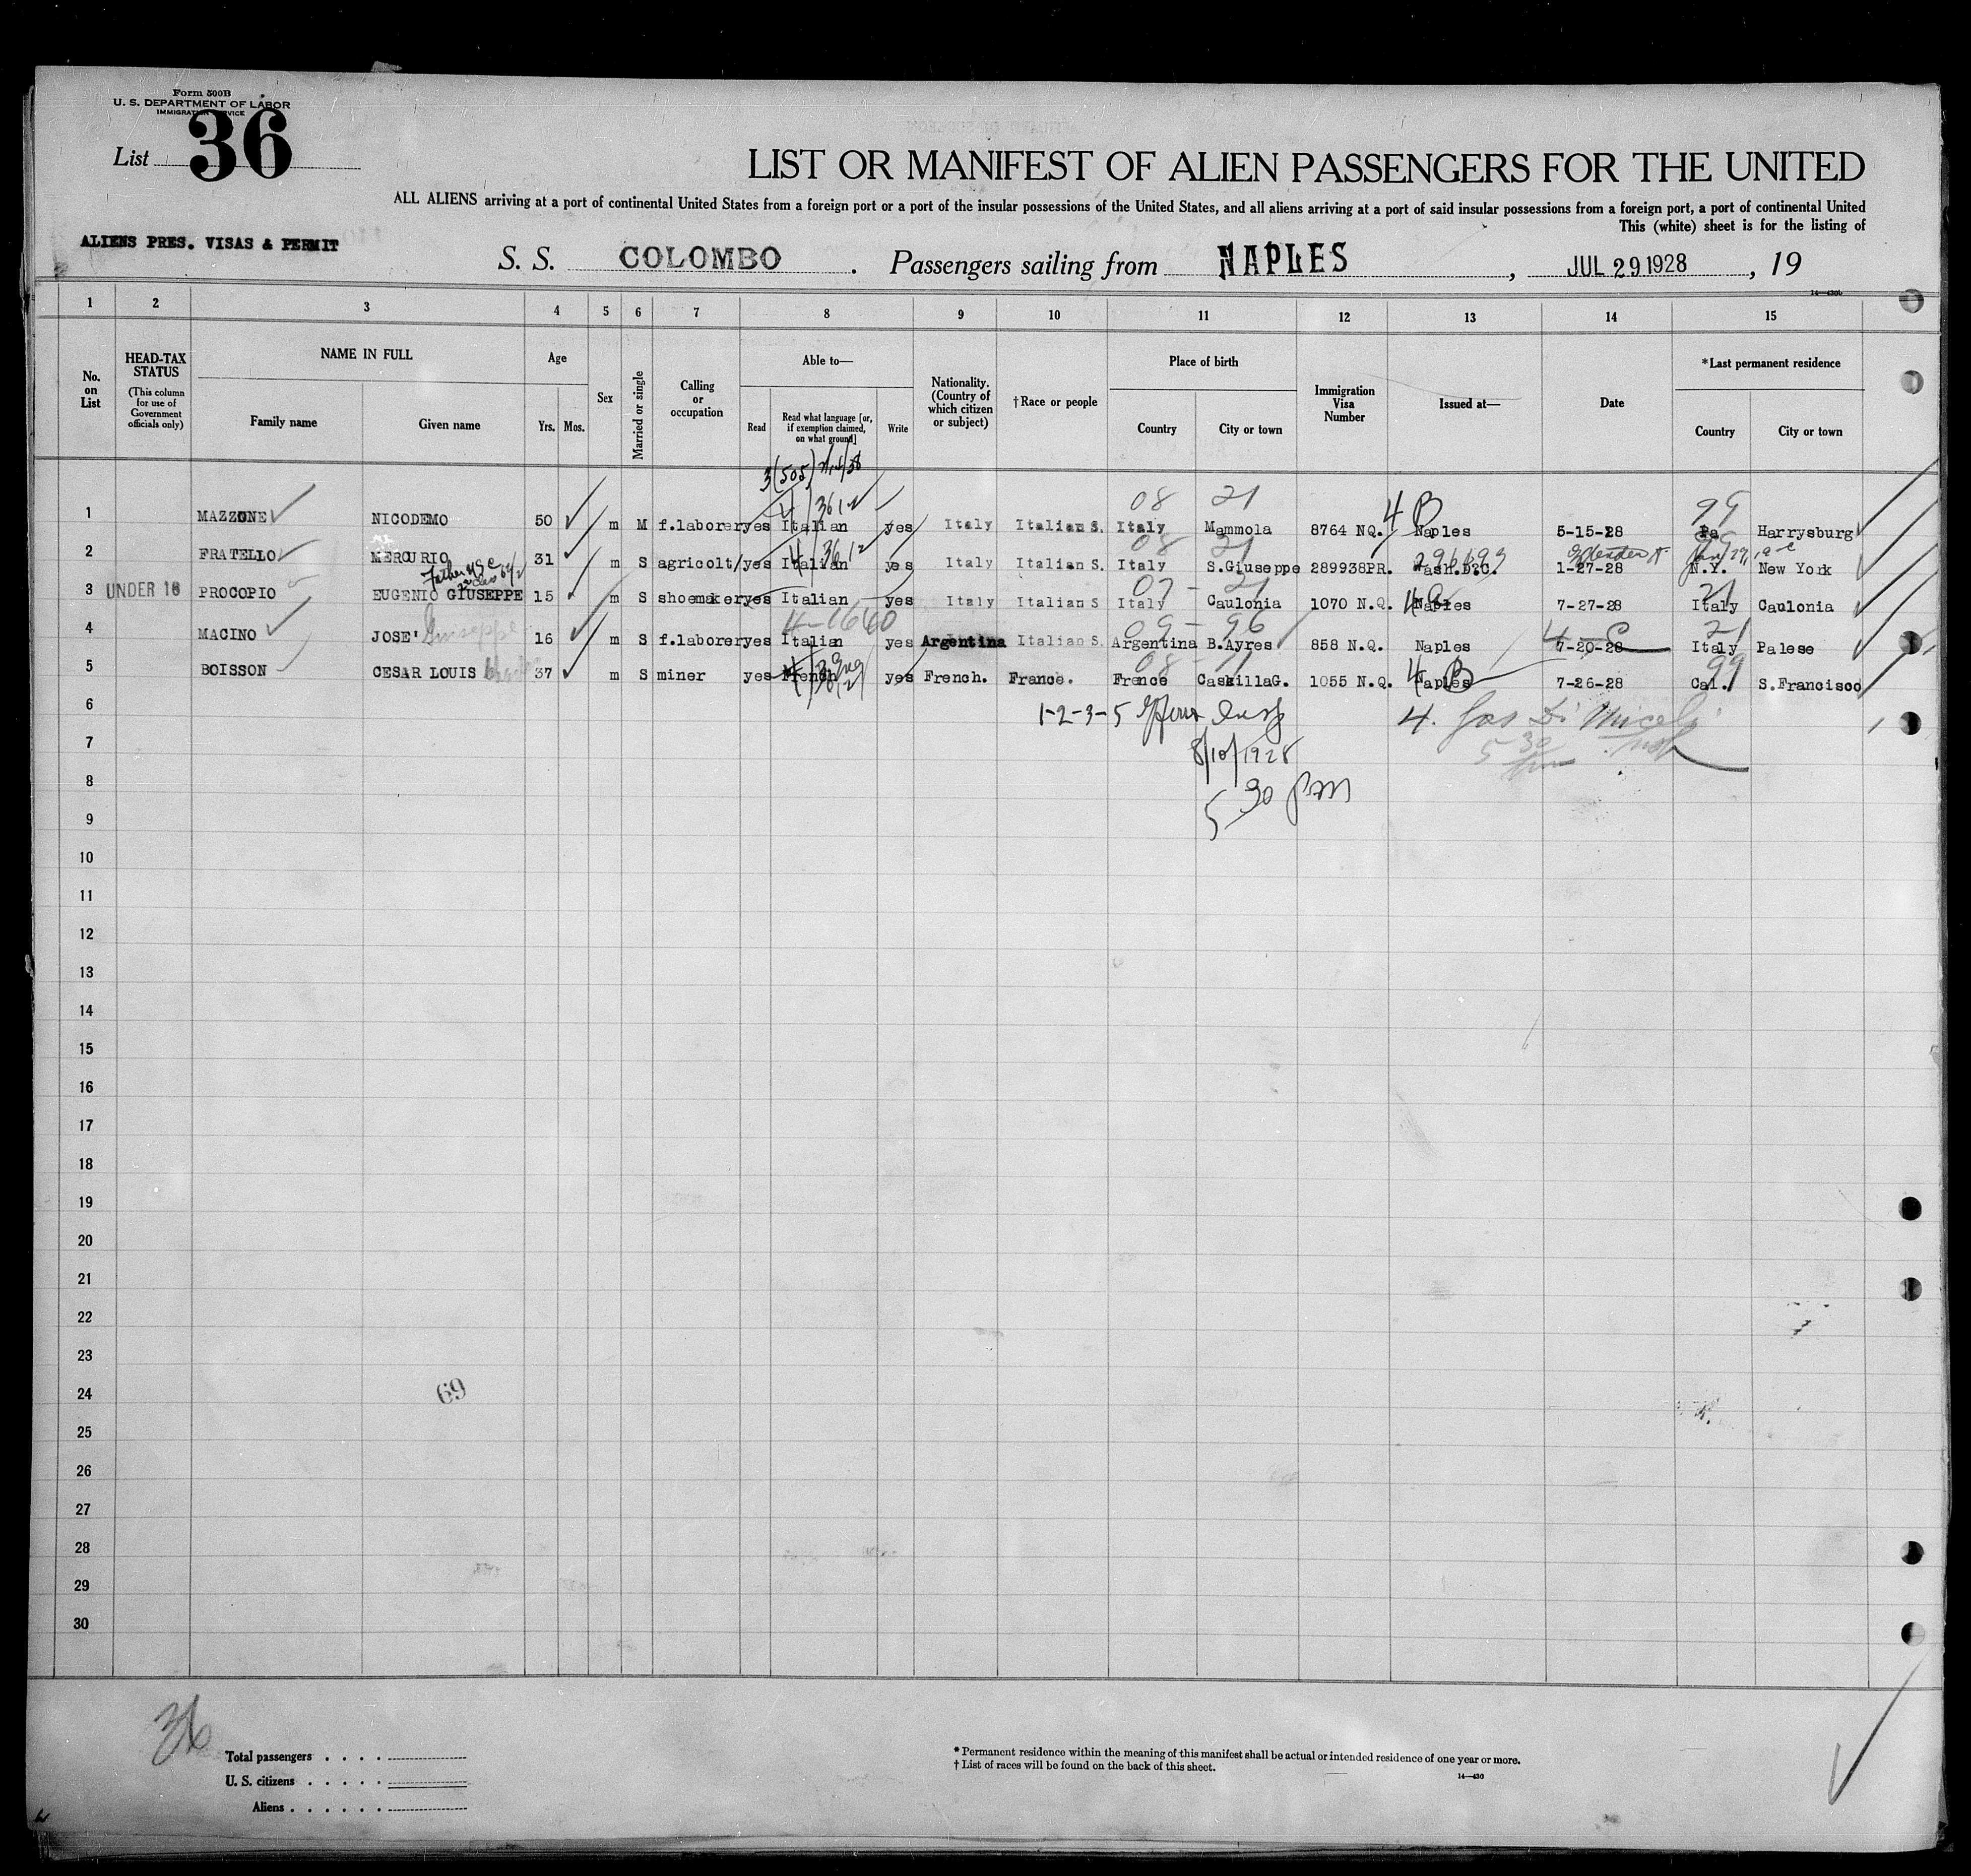 Form 500B
U. S. DEPARTMENT OF LABOR
IMMIGRATION SERVICE
List 36
LIST OR MANIFEST OF ALIEN PASSENGERS FOR THE UNITED
ALL ALIENS arriving at a port of continental United States from a foreign port or a port of the insular possessions of the United States, and all aliens arriving at a port of said insular possessions from a foreign port, a port of continental United
This (white) sheet is for the listing of
ALIENS PRES. VISAS & PERMIT
S. S. COLOMBO . Passengers sailing from NAPLES , JUL 29 1928 , 19
14—430b
1 2 3 4 5 6 7 8 9 10 11 12 13 14 15
No. on List
HEAD-TAX STATUS
(This column for use of Government officials only)
NAME IN FULL
Family name
Given name
Age
Yrs. Mos.
Sex
Married or single
Calling or occupation
Able to—
Read
Read what language [or, if exemption claimed, on what ground]
Write
Nationality. (Country of which citizen or subject)
†Race or people
Place of birth
Country
City or town
Immigration Visa Number
Issued at—
Date
*Last permanent residence
Country
City or town
3(505)
08 21 4 B 99
1 MAZZONE NICODEMO 50 m M f.laborer yes Italian yes Italy Italian S. Italy Mammola 8764 NQ. Naples 5-15-28 Pa Harrysburg
08 21
2 FRATELLO MERCURIO 31 m S agricolt/ yes Italian yes Italy Italian S. Italy S.Giuseppe 289938PR. Wash.D.C. 1-27-28 N.Y. New York
Father
07 - 21
3 UNDER 16 PROCOPIO EUGENIO GIUSEPPE 15 m S shoemaker yes Italian yes Italy Italian S Italy Caulonia 1070 N.Q. Naples 7-27-28 Italy Caulonia
09 - 96 21
4 MACINO JOSE' Giuseppe 16 m S f.laborer yes Italian yes Argentina Italian S. Argentina B.Ayres 858 N.Q. Naples 7-20-28 Italy Palese
08 - 11 4 B 99
5 BOISSON CESAR LOUIS 37 m S miner yes French yes French. France. Frence CaskillaG. 1055 N.Q. Naples 7-26-28 Cal. S.Francisco
6
1-2-3-5
4.
7
8/10/1928
5 30
8
5 30 pm
9
10
11
12
13
14
15
16
17
18
19
20
21
22
23
24
69
25
26
27
28
29
30
36
Total passengers . . . .
U. S. citizens . . . . .
Aliens . . . . . .
* Permanent residence within the meaning of this manifest shall be actual or intended residence of one year or more.
† List of races will be found on the back of this sheet.
14—430